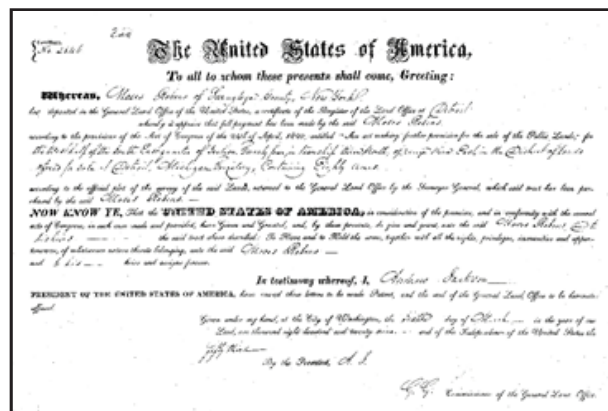 The United States of America,
To all to whom these presents shall come, Greeting:
Whereas, Moses Robins of County, New York
has deposited in the General Land Office of the United States, a certificate of the Register of the Land Office at Detroit
whereby it appears that full payment has been made by the said Moses Robins
according to the provisions of the Act of Congress of the 24th of April, 1820, entitled "An act making further provision for the sale of the Public Lands," for
the West half of the South East quarter of Section Twenty four, in township North, of range East, in the District of lands
offered for sale at Detroit, Michigan Territory, Containing Eighty acres
according to the official plat of the survey of the said Lands, returned to the General Land Office by the Surveyor General, which said tract has been pur-
chased by the said Moses Robins
NOW KNOW YE, That the UNITED STATES OF AMERICA, in consideration of the premises, and in conformity with the several
acts of Congress, in such case made and provided, have Given and Granted, and, by these presents, do give and grant, unto the said Moses Robins
the said tract above described: To Have and to Hold the same, together with all the rights, privileges, immunities and appur-
tenances, of whatsoever nature thereto belonging, unto the said Moses Robins
and to his heirs and assigns forever.
In testimony whereof, I, Andrew Jackson
PRESIDENT OF THE UNITED STATES OF AMERICA, have caused these letters to be made Patent, and the seal of the General Land Office to be hereunto
affixed.
Given under my hand, at the City of Washington, the day of March in the year of our
Lord, one thousand eight hundred and twenty nine and of the Independence of the United States the
fifty third
By the President, A. J.
G. G. Commissioner of the General Land Office.